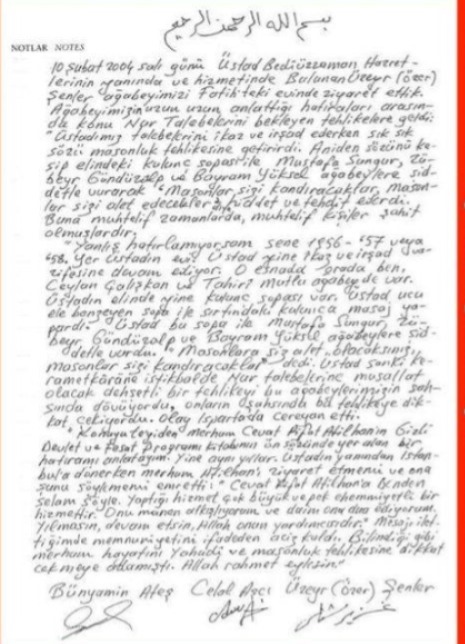 بسم الله الرحمن الرحيم
NOTLAR NOTES
10 Şubat 2004 salı günü Üstad Bediüzzaman Hazret-
lerinin yanında ve hizmetinde Bulunan Üzeyr (özer)
Şenler ağabeyimizi Fatih'teki evinde ziyaret ettik.
Ağabeyimizin uzun uzun anlattığı hatıraları arasın-
da konu Nur Talebelerini bekleyen tehlikelere geldi:
"Üstadımız talebelerini ikaz ve irşad ederken sık sık
sözü masonluk tehlikesine getirirdi. Aniden sözünü ke-
sip elindeki kulunc sopası ile Mustafa Sungur, Zü-
beyr Gündüzalp ve Bayram Yüksel ağabeylere şid-
detle vurarak "Masonlar sizi kandıracaklar, mason-
lar sizi alet edecekler" diye hiddet ve tehdit ederdi.
Buna muhtelif zamanlarda, muhtelif kişiler şahit
olmuşlardır.
"Yanlış hatırlamıyorsam sene 1956-'57 veya
'58. Yer Üstadın evi. Üstad yine ikaz ve irşad va-
zifesine devam ediyor. O esnada orada ben,
Ceylan Çalışkan ve Tahiri Mutlu ağabey de var.
Üstadın elinde yine kulunc sopası var. Üstad ucu
ele benzeyen sopa ile sırtındaki kulunca masaj ya-
pardı. Üstad bu sopa ile Mustafa Sungur, Zü-
beyr Gündüzalp ve Bayram Yüksel ağabeylere şid-
detle vurdu. "Masonlara siz alet olacaksınız,
masonlar sizi kandıracaklar" dedi. Üstad sanki ke-
rametkârâne istikbalde Nur talebelerine musallat
olacak dehşetli bir tehlikeyi bu ağabeylerimizin şah-
sında dövüyordu, onların şahsında bu tehlikeye dik-
kat çekiyordu. Olay Ispartada cereyan etti.
merhum Cevat Rıfat Atilhan'ın Gizli
Devlet ve Fesat Programı kitabının ön sözünde yer alan bir
hatıramı anlatayım. Yine aynı yıllar. Üstadın yanından İstan-
bul'a dönerken merhum Atilhan'ı ziyaret etmemi ve ona
şunu söylememi emretti: "Cevat Rıfat Atilhan'a benden
selam söyle. Yaptığı hizmet çok büyük ve pek ehemmiyetli bir
hizmettir. Onu manen alkışlıyorum ve daim ona dua ediyorum.
Yılmasın, devam etsin, Allah onun yardımcısıdır." Mesajı ilet-
tiğimde memnuniyetini ifadeden aciz kaldı. Bilindiği gibi
merhum hayatını Yahudi ve masonluk tehlikesine dikkat
çekmeye adamıştı. Allah rahmet eylesin."
Bünyamin Ateş Celal Azcı Üzeyr (özer) Şenler